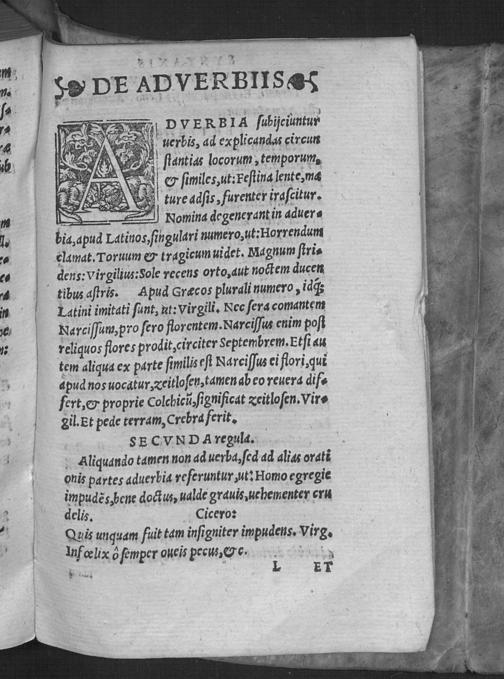 DE ADVERBIIS
ADVERBIA subijciuntur
uerbis, ad explicandas circun
stantias locorum, temporum,
& similes, ut: Festina lente, ma
ture adsis, furenter irascitur.
Nomina degenerant in aduer-
bia, apud Latinos, singulari numero, ut: Horrendum
clamat. Toruum & tragicum uidet. Magnum stri-
dens: Virgilius: Sole recens orto, aut noctem ducen
tibus astris. Apud Græcos plurali numero, idq;
Latini imitati sunt, ut: Virgili. Nec sera comantem
Narcissum, pro sero florentem. Narcissus enim post
reliquos flores prodit, circiter Septembrem. Etsi au
tem aliqua ex parte similis est Narcissus ei flori, qui
apud nos uocatur, zeitlosen, tamen ab eo reuera dif-
fert, & proprie Colchicũ, significat zeitlosen. Vir-
gil. Et pede terram, Crebra ferit.
SECVNDA regula.
Aliquando tamen non ad uerba, sed ad alias orati
onis partes aduerbia referuntur, ut: Homo egregie
impudẽs, bene doctus, ualde grauis, uehementer cru
delis. Cicero:
Quis unquam fuit tam insigniter impudens. Virg.
Infœlix ô semper oueis pecus, &c.
L ET